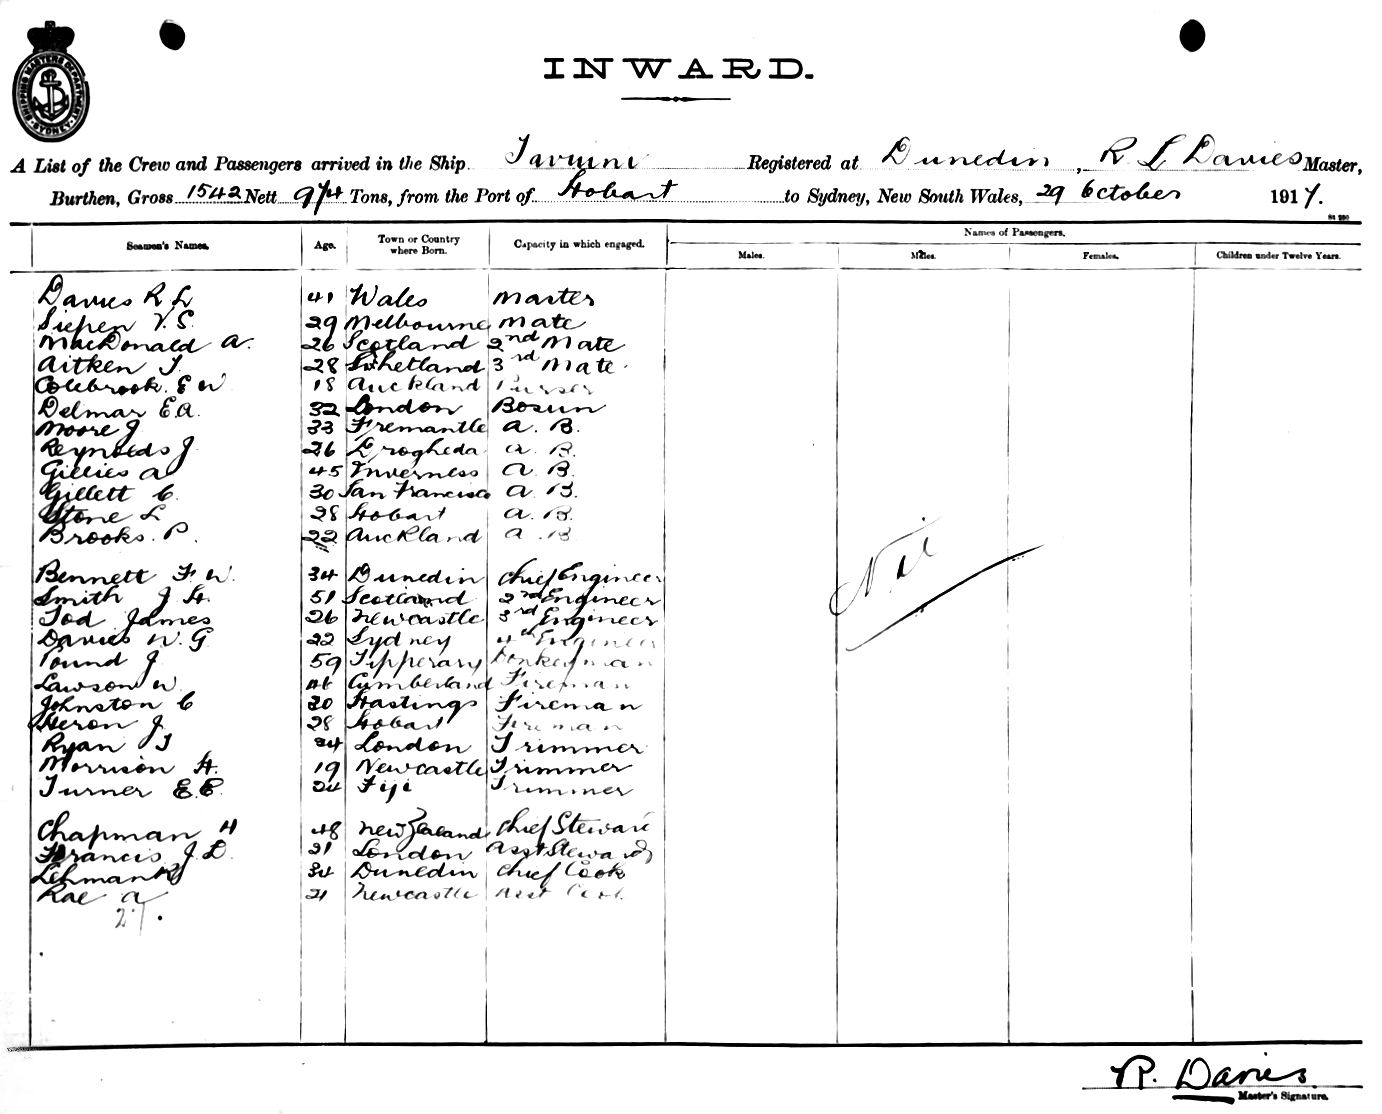 SHIPPING MASTERS DEPARTMENT SYDNEY
INWARD.
A List of the Crew and Passengers arrived in the Ship Taviuni Registered at Dunedin, R L Davies Master,
Burthen, Gross 1542 Nett 974 Tons, from the Port of Hobart to Sydney, New South Wales, 29 October 1917.
Seamen's Names. Age. Town or Country where Born. Capacity in which engaged. Names of Passengers.
Males. Males. Females. Children under Twelve Years.
Davies R L 41 Wales Master
Siepen V. S. 29 Melbourne Mate
MacDonald A. 26 Scotland 2nd Mate
Aitken T 28 Shetland 3rd Mate
Colebrook E W 18 Auckland Purser
Delmar E.A. 32 London Bosun
Moore J 33 Fremantle A. B.
Reynolds J. 26 Drogheda A. B.
Gillies A 45 Inverness A. B.
Gillett C. 30 San Francisco A. B.
Stone L 28 Hobart A. B.
Brooks. P. 22 Auckland A. B.
Bennett F W. 34 Dunedin Chief Engineer
Smith J H. 51 Scotland 2nd Engineer
Tod James 26 Newcastle 3rd Engineer
Davies W. G 22 Sydney 4th Engineer
Pound J 59 Tipperary Donkeyman
Lawson W Cumberland Fireman
Johnston C 30 Hastings Fireman
Heron J. 28 Hobart Fireman
Ryan T 34 London Trimmer
Morrison H. 19 Newcastle Trimmer
Turner E.E. 24 Fiji Trimmer
Chapman H 48 New Zealand Chief Steward
Francis J. D. 21 London Asst Steward
Lehman 34 Dunedin Chief Cook
Rae A 21 Newcastle Asst Cook
27.
Nil
R. Davies.
Master's Signature.